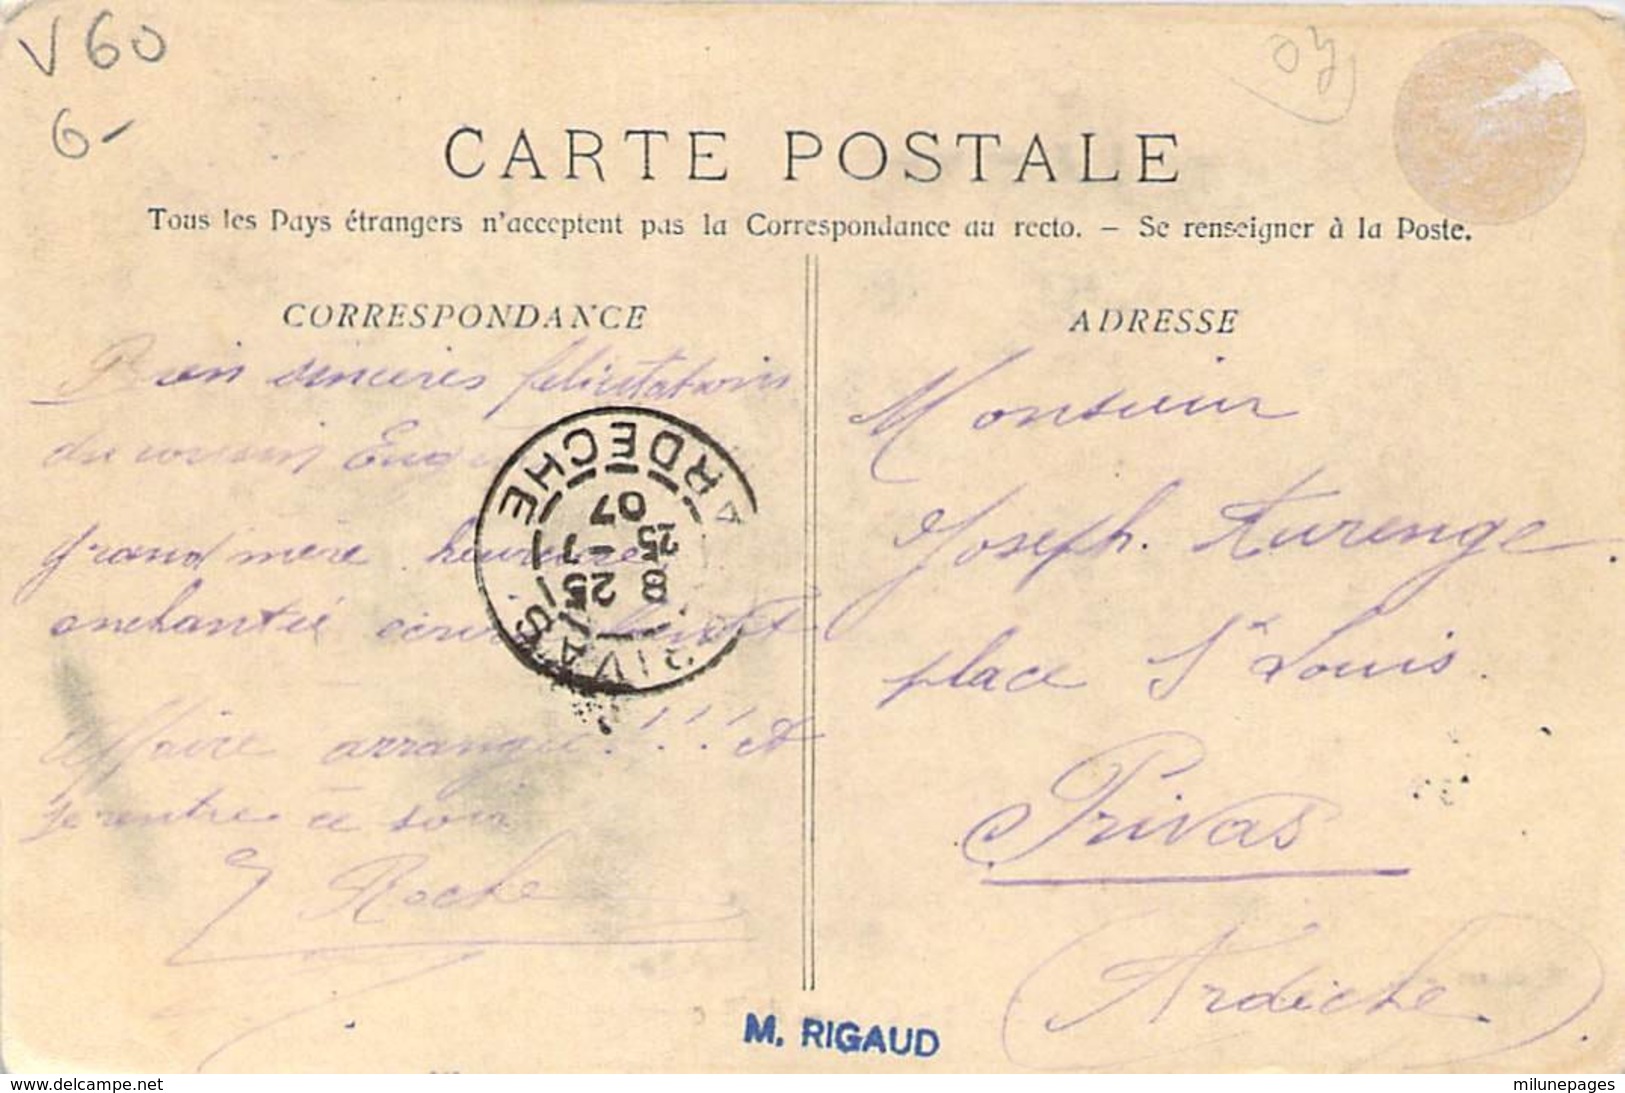 V60
6-
07
CARTE POSTALE
Tous les Pays étrangers n'acceptent pas la Correspondance au recto. — Se renseigner à la Poste.
CORRESPONDANCE
Bien sinceres felicitations
du cousin
grand mère heureuse
enchantée
affaire arrangée!!! et
je rentre ce soir
E Roche
PRIVAS
ARDECHE
8 25
25 -7
07
ADRESSE
Monsieur
Joseph. Aurenge.
place St Louis.
Privas
(Ardèche).
M. RIGAUD
www.delcampe.net
milunepages